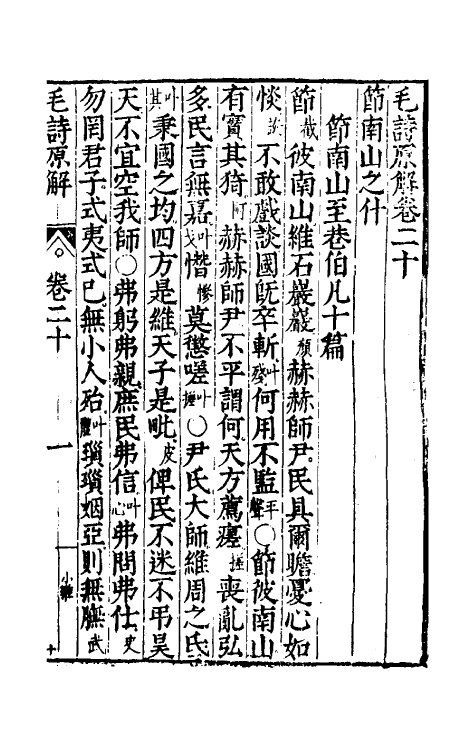 毛詩原解卷二十
節南山之什
節南山至巷伯凡十篇
節截彼南山維石巖巖顏赫赫師尹民具爾瞻憂心如
惔談不敢戲談國旣卒斬叶殘何用不監平聲○節彼南山
有實其猗阿赫赫師尹不平謂何天方薦瘥搓喪亂弘
多民言無嘉叶戈憯慘莫懲嗟叶搓○尹氏大師維周之氐
叶其秉國之均四方是維天子是毗皮俾民不迷不弔昊
天不宜空我師○弗躬弗親庶民弗信叶心弗問弗仕史
勿罔君子式夷式已無小人殆叶瑣瑣姻亞則無膴武
毛詩原解 卷二十 一 小雅